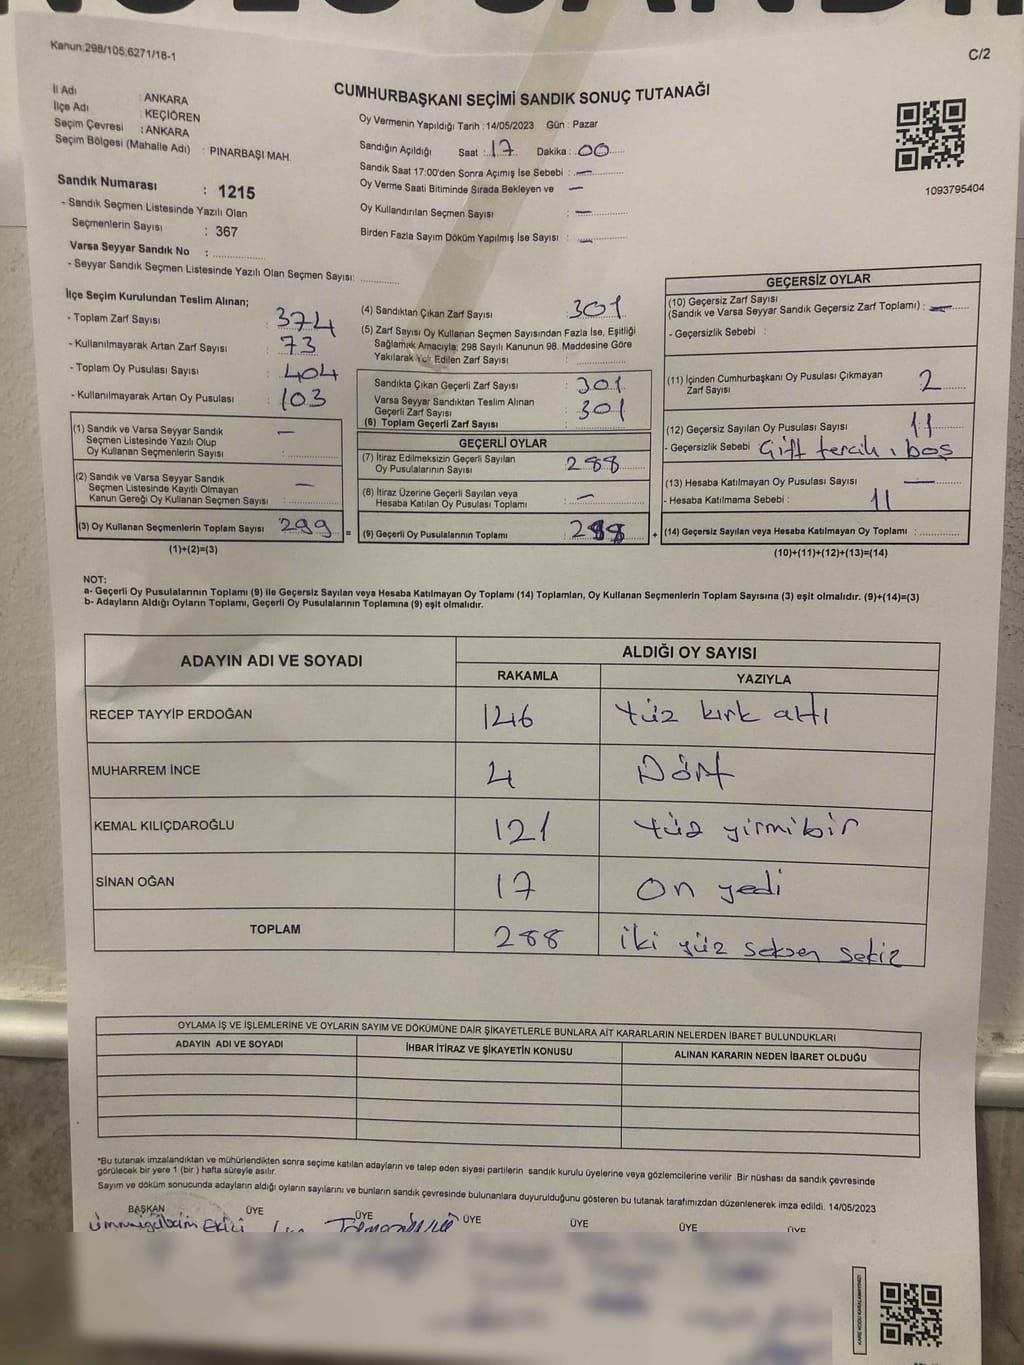 Kanun:298/105;6271/18-1
C/2
CUMHURBAŞKANI SEÇİMİ SANDIK SONUÇ TUTANAĞI
İl Adı : ANKARA
İlçe Adı : KEÇİÖREN
Seçim Çevresi : ANKARA
Seçim Bölgesi (Mahalle Adı) : PINARBAŞI MAH.
Sandık Numarası : 1215
- Sandık Seçmen Listesinde Yazılı Olan
Seçmenlerin Sayısı : 367
Varsa Seyyar Sandık No :
- Seyyar Sandık Seçmen Listesinde Yazılı Olan Seçmen Sayısı:
Oy Vermenin Yapıldığı Tarih : 14/05/2023 Gün : Pazar
Sandığın Açıldığı Saat : 17 Dakika : 00
Sandık Saat 17:00'den Sonra Açımış İse Sebebi : —
Oy Verme Saati Bitiminde Sırada Bekleyen ve —
Oy Kullandırılan Seçmen Sayısı : —
Birden Fazla Sayım Döküm Yapılmış İse Sayısı : —
1093795404
İlçe Seçim Kurulundan Teslim Alınan;
- Toplam Zarf Sayısı : 374
- Kullanılmayarak Artan Zarf Sayısı : 73
- Toplam Oy Pusulası Sayısı : 404
- Kullanılmayarak Artan Oy Pusulası : 103
(1) Sandık ve Varsa Seyyar Sandık —
Seçmen Listesinde Yazılı Olup
Oy Kullanan Seçmenlerin Sayısı :
(2) Sandık ve Varsa Seyyar Sandık
Seçmen Listesinde Kayıtlı Olmayan —
Kanun Gereği Oy Kullanan Seçmen Sayısı :
(3) Oy Kullanan Seçmenlerin Toplam Sayısı : 299 =
(1)+(2)=(3)
(4) Sandıktan Çıkan Zarf Sayısı : 301
(5) Zarf Sayısı Oy Kullanan Seçmen Sayısından Fazla İse, Eşitliği
Sağlamak Amacıyla; 298 Sayılı Kanunun 98. Maddesine Göre
Yakılarak Yok Edilen Zarf Sayısı :
Sandıkta Çıkan Geçerli Zarf Sayısı : 301
Varsa Seyyar Sandıktan Teslim Alınan
Geçerli Zarf Sayısı : 301
(6) Toplam Geçerli Zarf Sayısı :
GEÇERLİ OYLAR
(7) İtiraz Edilmeksizin Geçerli Sayılan
Oy Pusulalarının Sayısı : 288
(8) İtiraz Üzerine Geçerli Sayılan veya
Hesaba Katılan Oy Pusulası Toplamı : —
(9) Geçerli Oy Pusulalarının Toplamı : 288 +
GEÇERSİZ OYLAR
(10) Geçersiz Zarf Sayısı
(Sandık ve Varsa Seyyar Sandık Geçersiz Zarf Toplamı) : —
- Geçersizlik Sebebi :
(11) İçinden Cumhurbaşkanı Oy Pusulası Çıkmayan
Zarf Sayısı 2
(12) Geçersiz Sayılan Oy Pusulası Sayısı : 11
- Geçersizlik Sebebi Çift tercih, boş
(13) Hesaba Katılmayan Oy Pusulası Sayısı —
- Hesaba Katılmama Sebebi : 11
(14) Geçersiz Sayılan veya Hesaba Katılmayan Oy Toplamı :
(10)+(11)+(12)+(13)=(14)
NOT:
a- Geçerli Oy Pusulalarının Toplamı (9) ile Geçersiz Sayılan veya Hesaba Katılmayan Oy Toplamı (14) Toplamları, Oy Kullanan Seçmenlerin Toplam Sayısına (3) eşit olmalıdır. (9)+(14)=(3)
b- Adayların Aldığı Oyların Toplamı, Geçerli Oy Pusulalarının Toplamına (9) eşit olmalıdır.
ADAYIN ADI VE SOYADI
ALDIĞI OY SAYISI
RAKAMLA YAZIYLA
RECEP TAYYİP ERDOĞAN 146 Yüz kırk altı
MUHARREM İNCE 4 Dört
KEMAL KILIÇDAROĞLU 121 Yüz yirmibir
SİNAN OĞAN 17 On yedi
TOPLAM 288 iki yüz seksen sekiz
OYLAMA İŞ VE İŞLEMLERİNE VE OYLARIN SAYIM VE DÖKÜMÜNE DAİR ŞİKAYETLERLE BUNLARA AİT KARARLARIN NELERDEN İBARET BULUNDUKLARI
ADAYIN ADI VE SOYADI İHBAR İTİRAZ VE ŞİKAYETİN KONUSU ALINAN KARARIN NEDEN İBARET OLDUĞU
*Bu tutanak imzalandıktan ve mühürlendikten sonra seçime katılan adayların ve talep eden siyasi partilerin sandık kurulu üyelerine veya gözlemcilerine verilir .Bir nüshası da sandık çevresinde
görülecek bir yere 1 (bir ) hafta süreyle asılır.
Sayım ve döküm sonucunda adayların aldığı oyların sayılarını ve bunların sandık çevresinde bulunanlara duyurulduğunu gösteren bu tutanak tarafımızdan düzenlenerek imza edildi. 14/05/2023
BAŞKAN ÜYE ÜYE ÜYE ÜYE ÜYE ÜYE